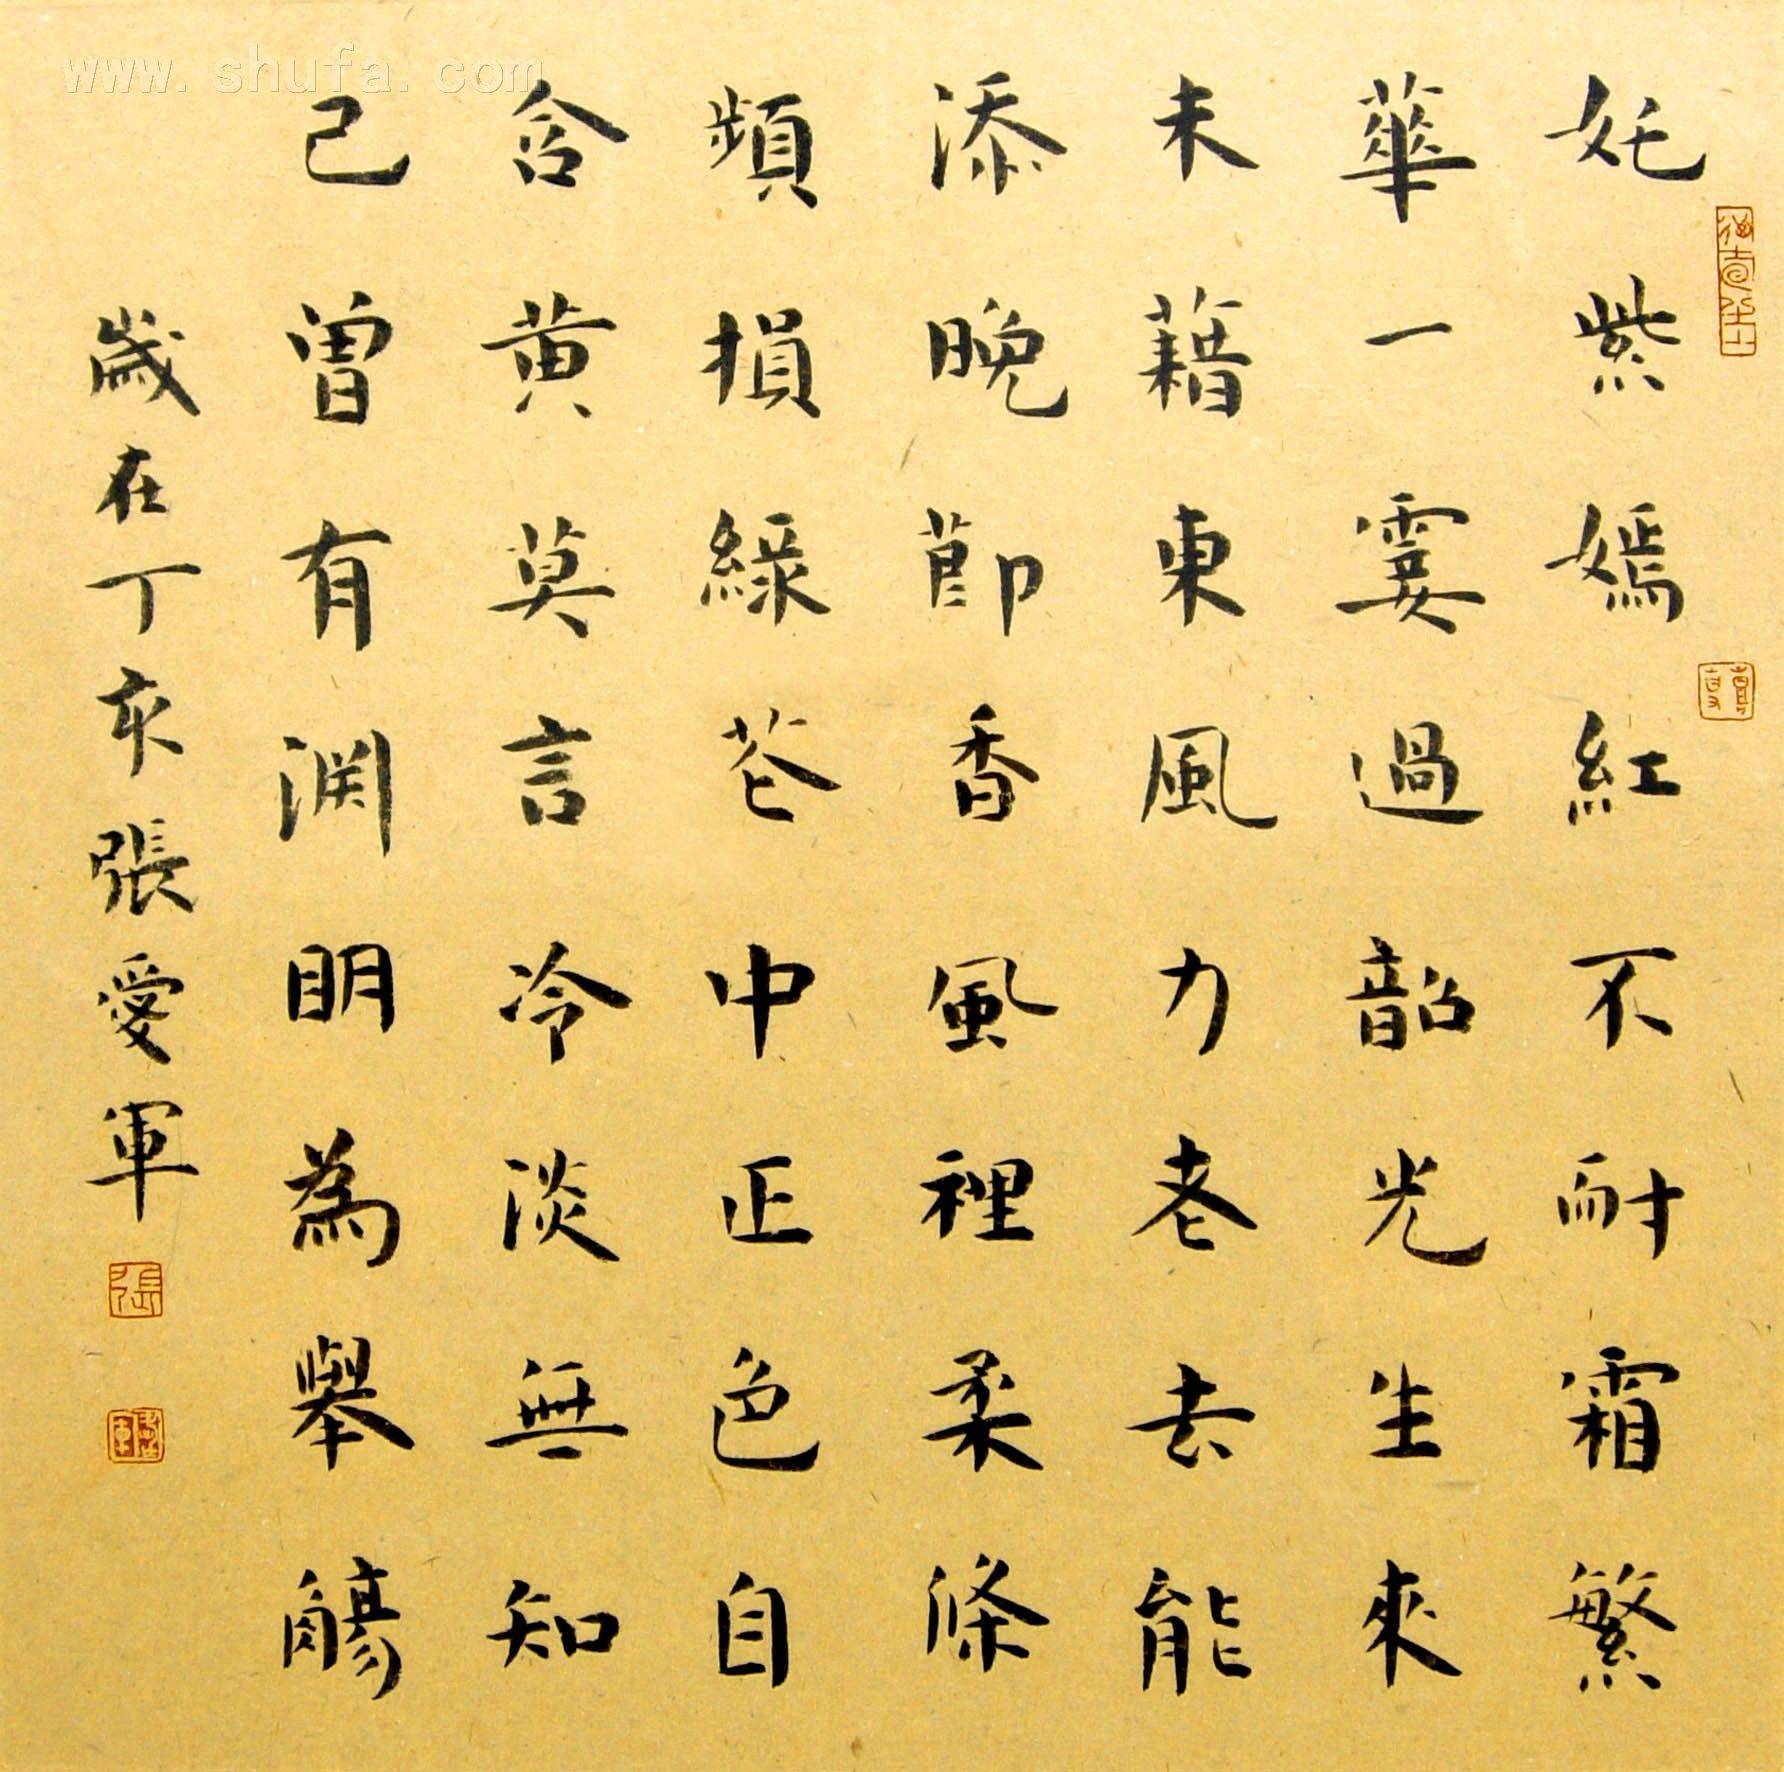 www.shufa.com
奼紫嫣紅不耐霜繁
華一霎過韶光生來
未藉東風力老去能
添晚節香風裡柔條
頻損綠花中正色自
含黃莫言冷淡無知
己曾有淵明為舉觴
歲在丁亥張愛軍
張